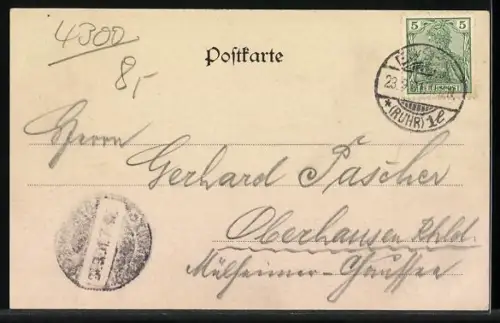 4300
8,-
Postkarte
5 5
23.9
*(RUHR) 1e
Herrn
Gerhard Pascher
Oberhausen Rhld.
Mülheimer-Chaussee